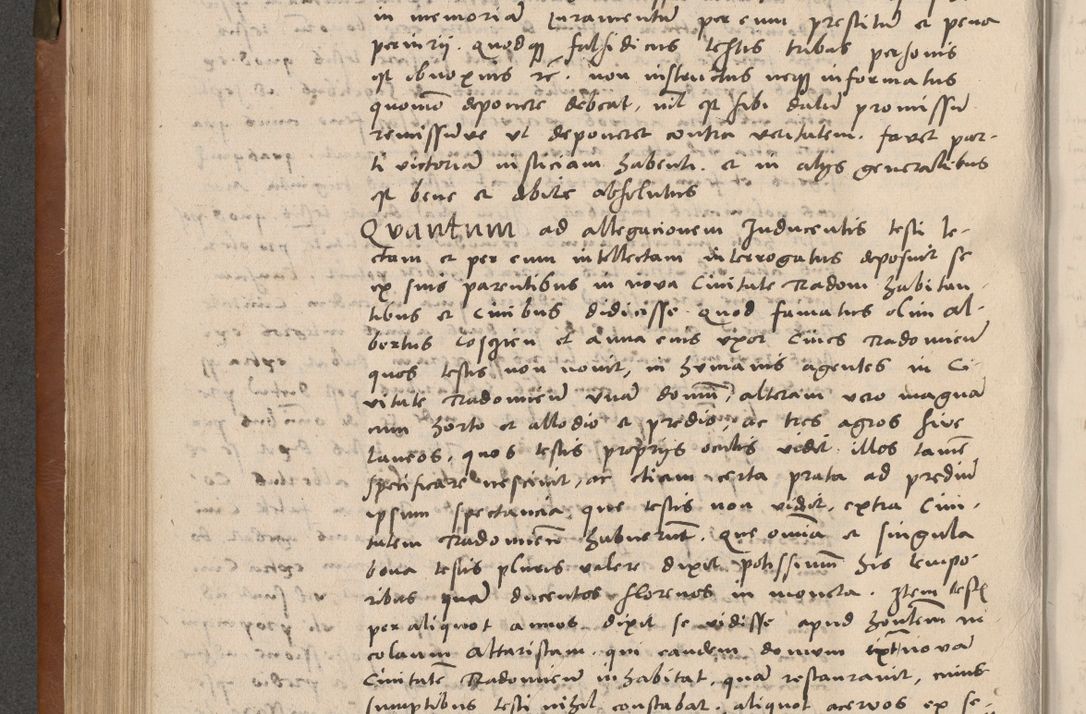 in memoriā Iuramentū per eum prestitū et pena
periurij. Quodqȝ falsidicus testis tribus personis
est obnoxius rē. non instructus neqȝ informatus
quomō deponere debeat, nil est sibi datū promissū
remissūve ut deponeret contra veritatem. favet par-
ti victoriā iusticiam habenti. et in alijs generalibus
est bene et abite absolutus
Quantum ad allegacionem Inducentis testi le-
ctam et per eum intellectam interrogatus deposuit se
ex suis parentibus in nova Civitate Radom habitan-
tibus et Civibus didicisse. Quod famatus olim Al-
bertus Coszien et Anna eius uxor Cives Radomien̄
quos testis non novit, in humanis agentes in Ci-
vitate Radomien̄ vnā domū, alteram vero magnā
cum horto et allodio et predio, ac tres agros sive
laneos, quos testis proprijs oculis vidit illos tamē
specificare nescivit, ac etiam certa prata ad prediū
ipsum spectancia que testis non vidit, extra Civi-
tatem Radomien̄ habuerūt. Que omīa et singula
bona testis pluris valere dixit potissimū his tempo
ribus quā ducentos florenos in moneta. Item testis
per aliquot annos dixit se vidisse apud honlem ni-
colaum Altaristam. qui eandem domum extra novā
Civitatē Radomien̄ inhabitat, quā restauravit, cuius
sumptibus testi nihil constabat. aliquot acervos ex se-